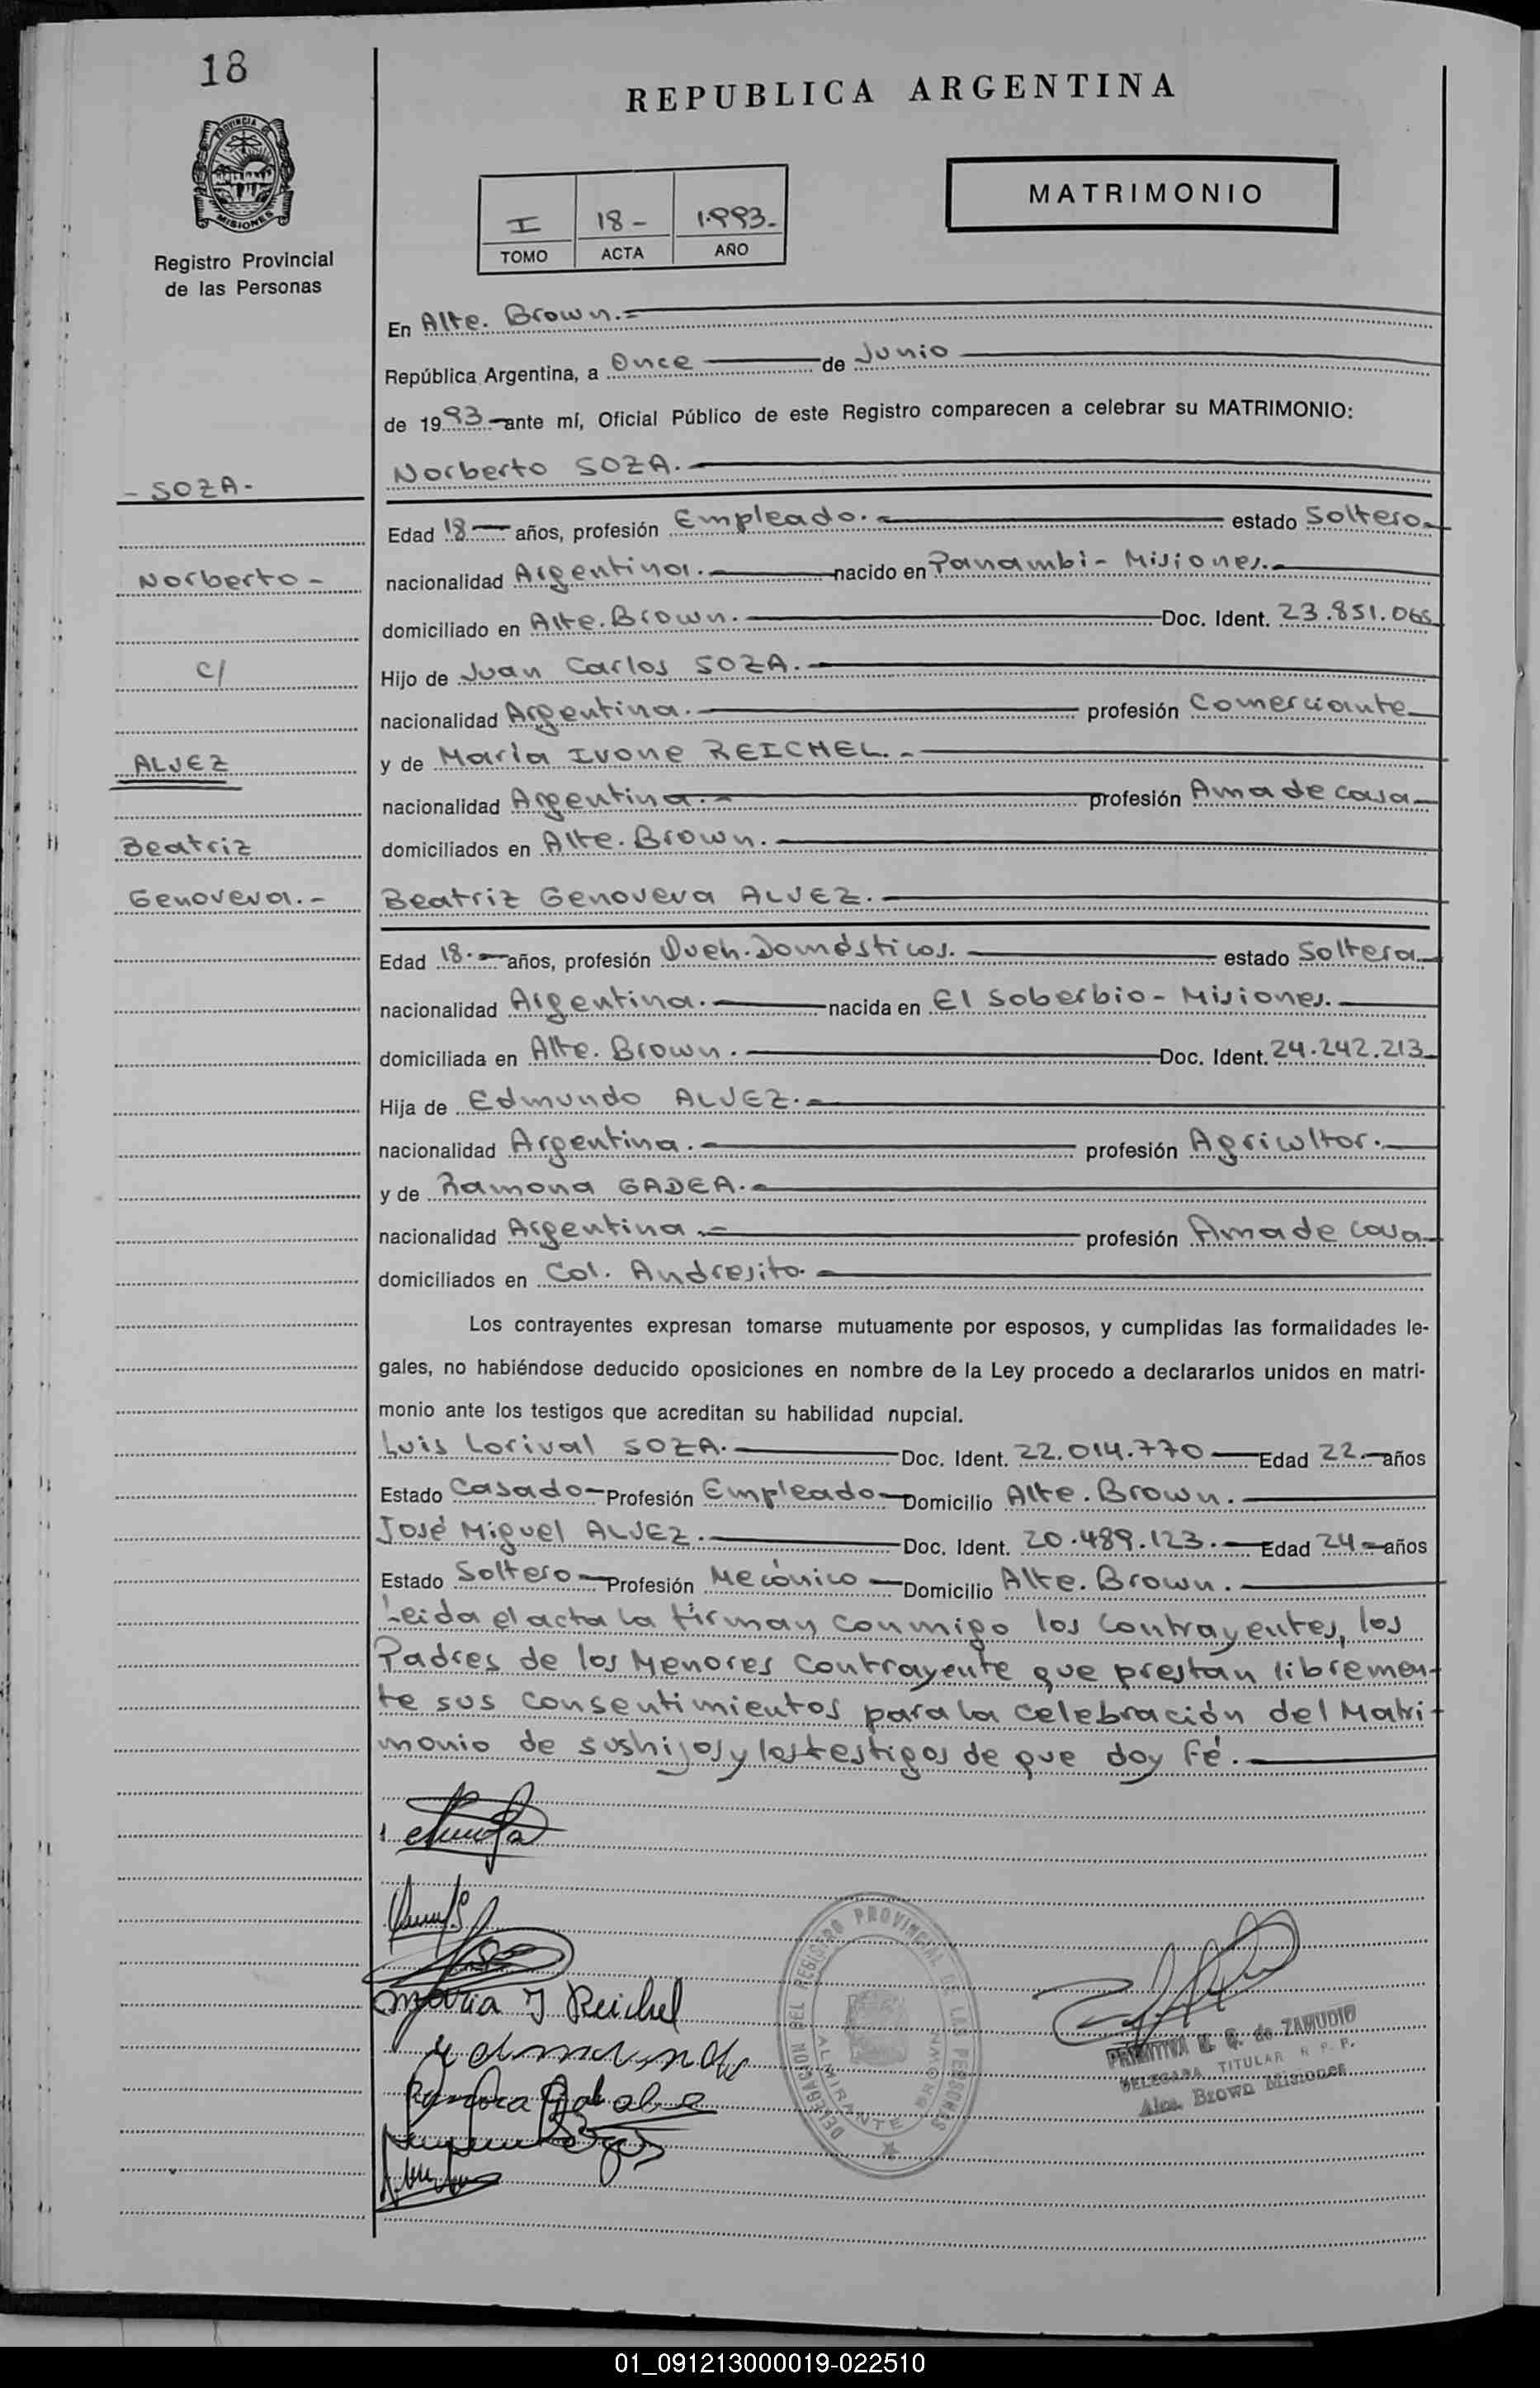 18
PROVINCIA DE
MISIONES
Registro Provincial
de las Personas
REPUBLICA ARGENTINA
MATRIMONIO
I 18- 1.993.-
TOMO ACTA AÑO
En Alte. Brown.=
República Argentina, a Once de Junio
de 1993 ante mí, Oficial Público de este Registro comparecen a celebrar su MATRIMONIO:
- SOZA.-
Norberto SOZA.-
Edad 18 años, profesión Empleado.- estado Soltero
Norberto -
nacionalidad Argentina.- nacido en Panambi - Misiones.-
domiciliado en Alte. Brown.- Doc. Ident. 23.851.065
c/
Hijo de Juan Carlos SOZA.-
nacionalidad Argentina.- profesión Comerciante
ALVEZ
y de María Ivone REICHEL.-
nacionalidad Argentina.- profesión Ama de casa
Beatriz
domiciliados en Alte. Brown.-
Genoveva.-
Beatriz Genoveva ALVEZ.-
Edad 18.- años, profesión Queh. Domésticos.- estado Soltera
nacionalidad Argentina.- nacida en El Soberbio - Misiones.
domiciliada en Alte. Brown.- Doc. Ident. 24.242.213
Hija de Edmundo ALVEZ.-
nacionalidad Argentina.- profesión Agricultor.-
y de Ramona GADEA.-
nacionalidad Argentina.- profesión Ama de casa
domiciliados en Col. Andresito.-
Los contrayentes expresan tomarse mutuamente por esposos, y cumplidas las formalidades le-
gales, no habiéndose deducido oposiciones en nombre de la Ley procedo a declararlos unidos en matri-
monio ante los testigos que acreditan su habilidad nupcial.
Luis Lorival SOZA.- Doc. Ident. 22.014.770 Edad 22.- años
Estado Casado- Profesión Empleado- Domicilio Alte. Brown.-
José Miguel ALVEZ.- Doc. Ident. 20.489.123.- Edad 24- años
Estado Soltero- Profesión Mecánico- Domicilio Alte. Brown.-
Leida el acta la firman conmigo los contrayentes, los
Padres de los Menores Contrayente que prestan libremen-
te sus consentimientos para la celebración del Matri-
monio de sus hijos y los testigos de que doy Fé.-
Maria I Reichel
DELEGACION DEL REGISTRO PROVINCIAL DE LAS PERSONAS
ALMIRANTE BROWN
PRIMITIVA M. G. de ZAMUDIO
DELEGADA TITULAR R. P. P.
Alte. Brown Misiones
01_091213000019-022510